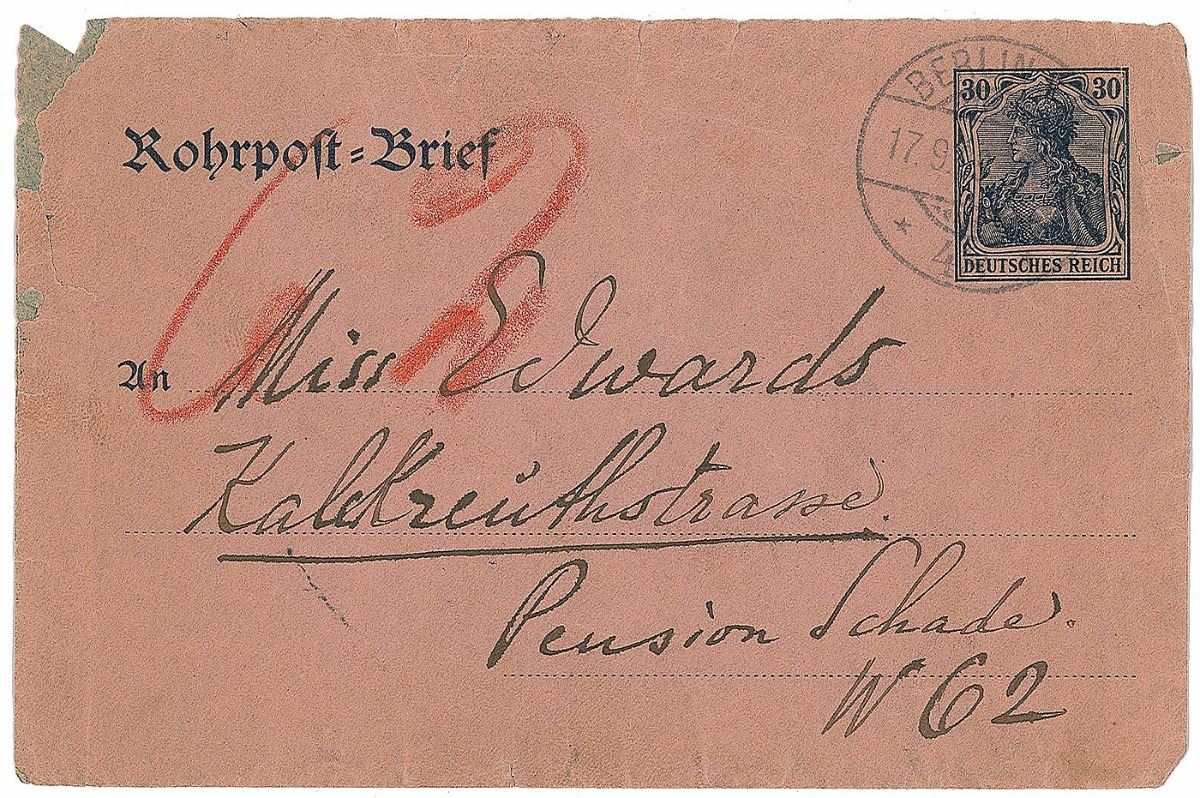 BERLIN
17.9
30 30
DEUTSCHES REICH
Rohrpoſt-Brief
62
An Miss Edwards
Kalkreuthstrasse.
Pension Schade.
W 62